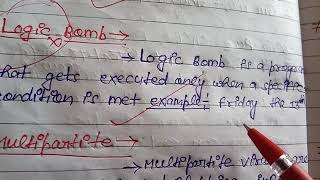 Logic Bomb →
→ Logic Bomb is a progra
that gets executed only when a specific
condition is met example:- Friday the 13th
Multipartite →
→ Multipartite